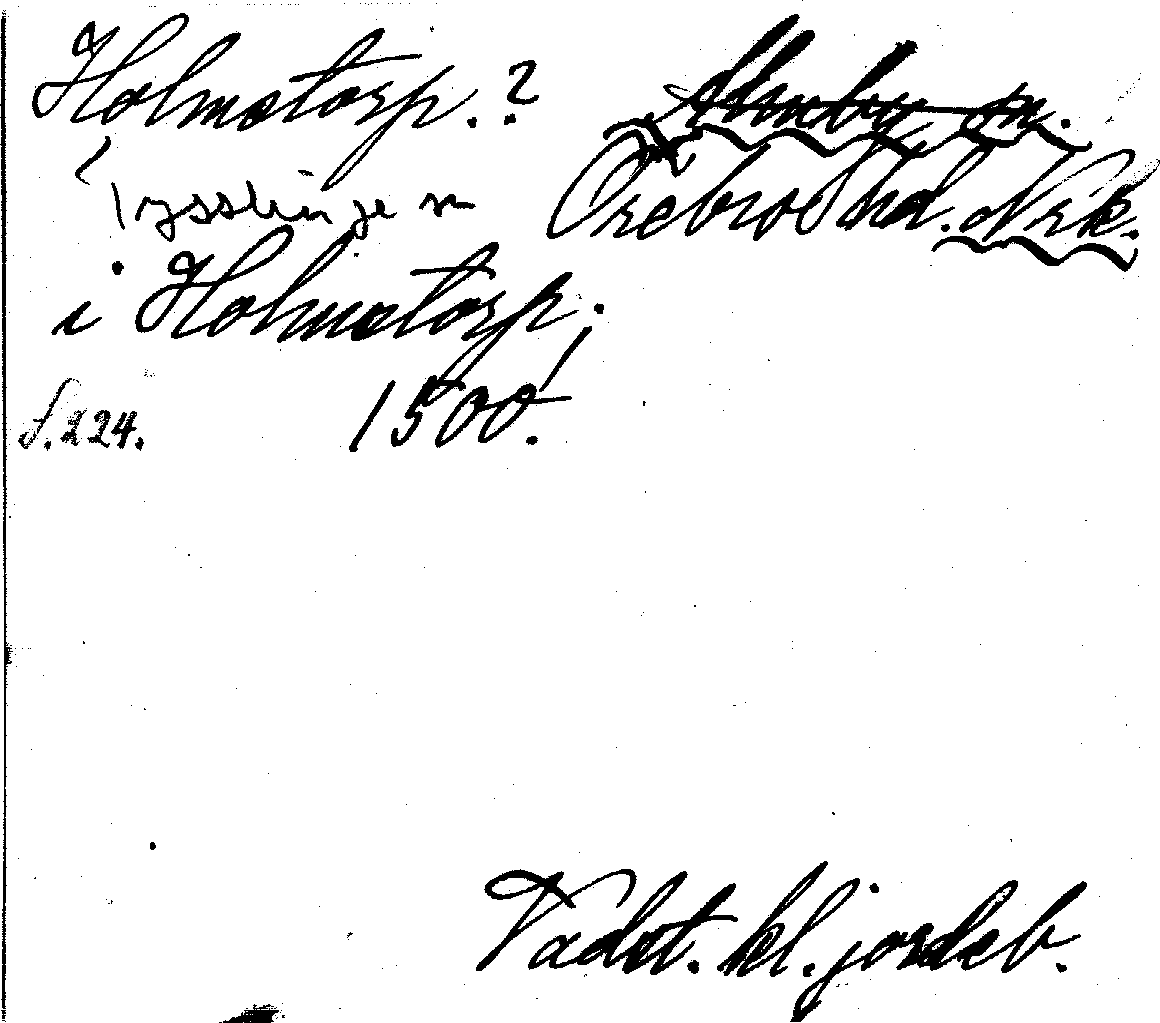 Holmstorp.? Almby sn.
Tysslinge sn Örebro hd. Nrk.
i Holmstorp.
s. 224. 1500!
Vadst. kl. jordeb.